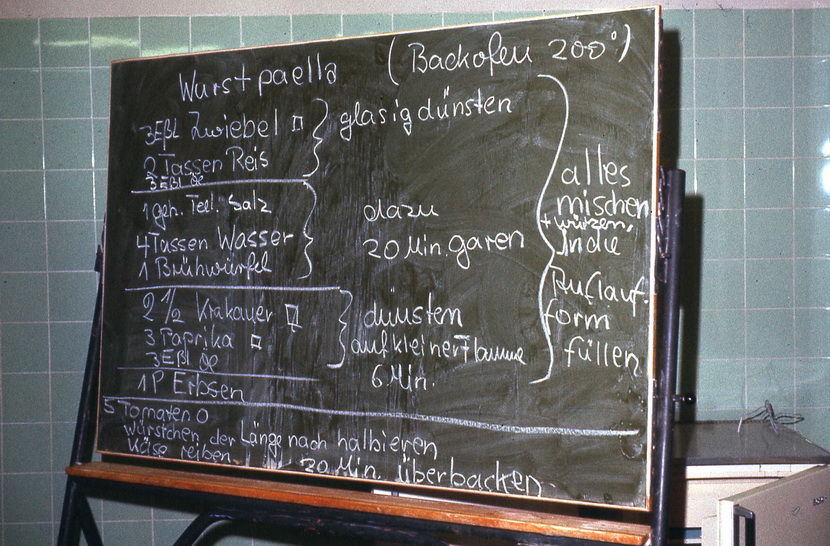 Wurstpaella (Backofen 200°)
3 Eßl Zwiebel
glasig dünsten
2 Tassen Reis
3 Eßl Öl
1 geh. Teel. Salz
4 Tassen Wasser
1 Brühwürfel
dazu
20 Min. garen
2 1/2 Krakauer
3 Paprika
3 Eßl Öl
dünsten
auf kleiner Flamme
6 Min.
1 P Erbsen
alles
mischen
+ würzen,
in die
Auflauf-
form
füllen
5 Tomaten
Würstchen der Länge nach halbieren
Käse reiben. 20 Min. überbacken